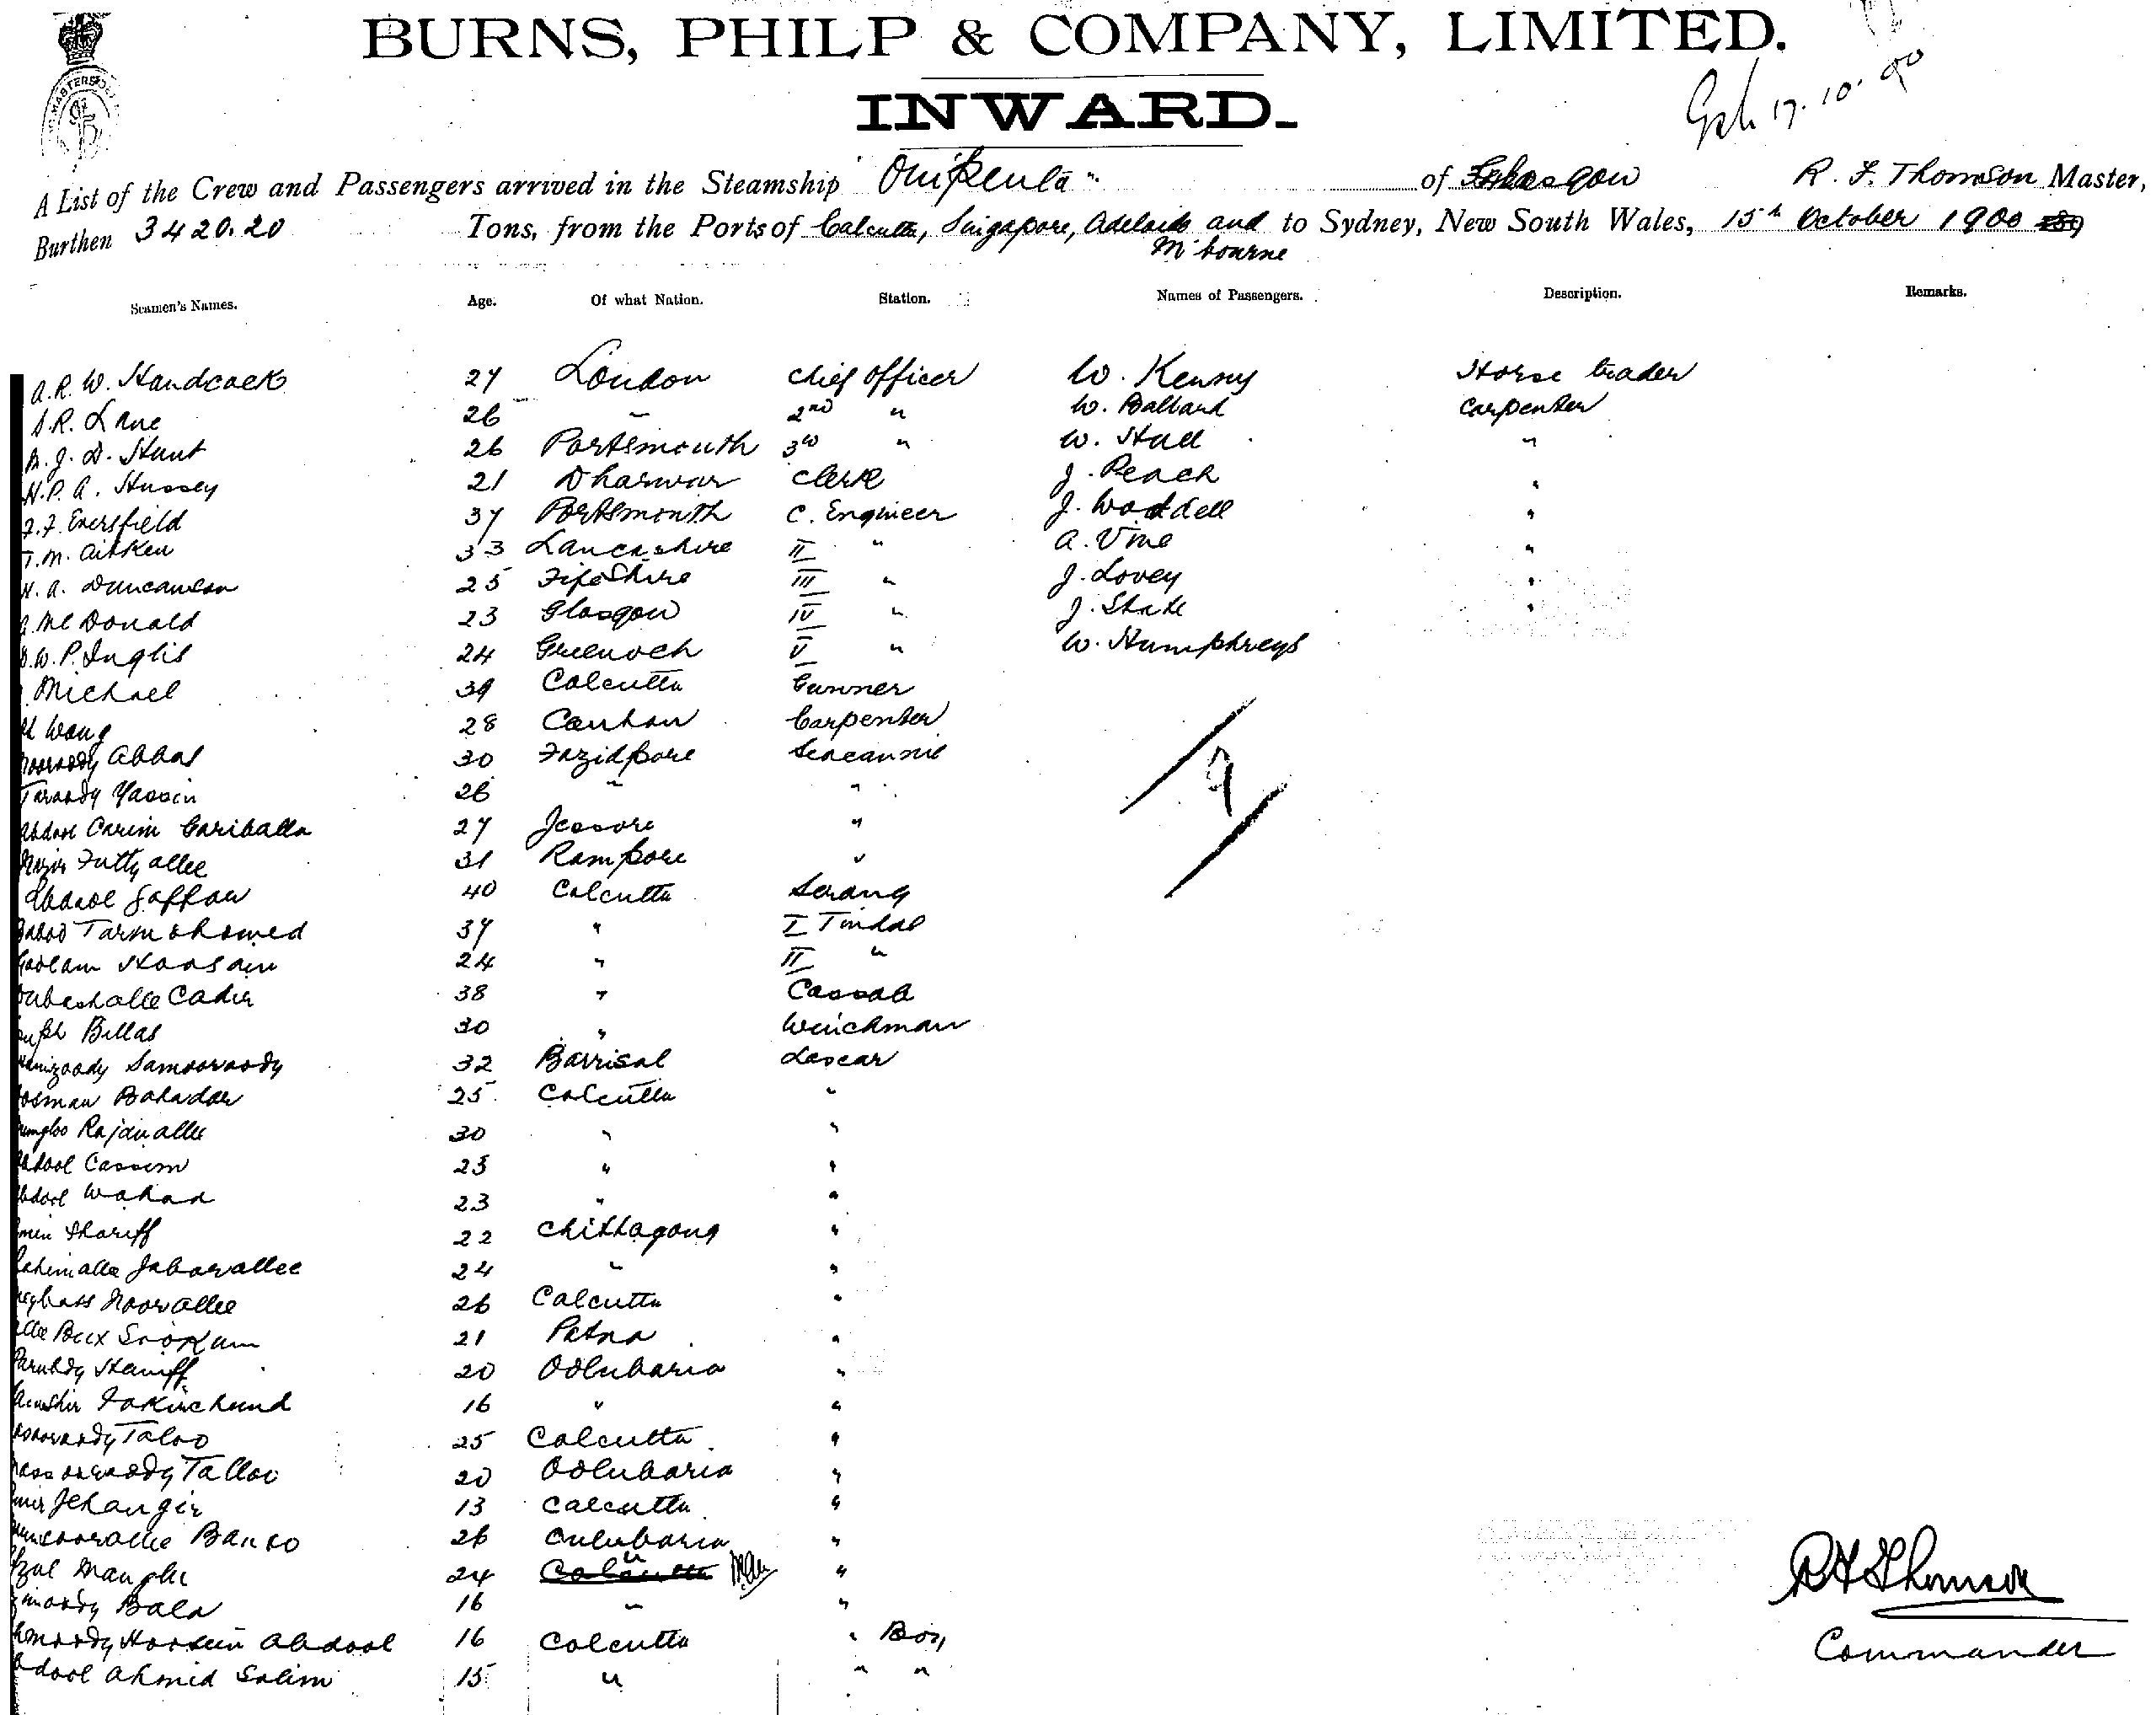 BURNS, PHILP & COMPANY, LIMITED.
INWARD.
17.10.00
A List of the Crew and Passengers arrived in the Steamship "Onipenta" of Glasgow R. F. Thomson Master,
Burthen 3420.20 Tons, from the Ports of Calcutta, Singapore, Adelaide and M'bourne to Sydney, New South Wales, 15th October 1900
Seamen's Names. Age. Of what Nation. Station. Names of Passengers. Description. Remarks.
A.R.W. Handcock 27 London Chief Officer W. Kensey Horse trader
S.R. Lane 26 " 2nd " W. Ballard Carpenter
A.J.D. Hunt 26 Portsmouth 3rd " W. Hall "
H.P.A. Hussey 21 Dharwar Clerk J. Peach "
F.F. Eversfield 37 Portsmouth C. Engineer J. Waddell "
T.M. Aitken 33 Lancashire II " A. Vine "
H.A. Duncanson 25 Fifeshire III " J. Lovey "
McDonald 23 Glasgow IV " J. "
W.P. Inglis 24 Greenock V " W. Humphreys
Michael 39 Calcutta Gunner
Wang 28 Canton Carpenter
Abbas 30 Seacunnie
Yassin 26 " "
Abdool Carim 27 Jessore "
Futtyallee 31 Rampore "
9
Abdool Gaffoor 40 Calcutta Serang
Tarmahomed 37 " I Tindal
Goolam Hoosain 24 " II "
Cadir 38 " Cassab
Billas 30 " Winchman
Samooroody 32 Barrisal Lascar
Osman Bahadar 25 Calcutta "
Rajanallee 30 " "
Abdool Cassim 23 " "
Abdool Wahad 23 " "
Shariff 22 Chittagong "
Rahimalle Jaborallee 24 " "
Noorallee 26 Calcutta "
Bux 21 Patna "
Haniff 20 Oolubaria "
Fakirchund 16 " "
Taloo 25 Calcutta "
Talloo 20 Oolubaria "
Jehangir 13 Calcutta "
Banoo 26 Oulubaria "
24 " "
Bala 16 " "
Hossein Abdool 16 Calcutta " Boy
Abdool Ahmed Salim 15 " " "
R F Thomson
Commander